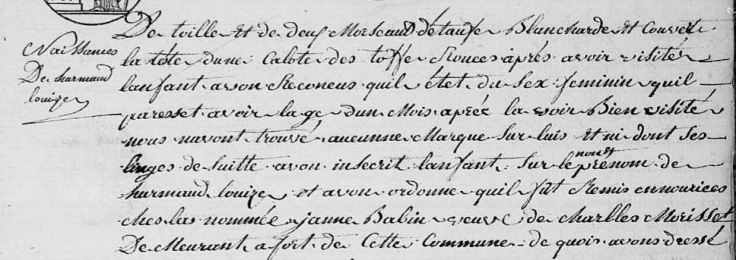 De toille et de deux Morseaud détaufe Blancharde et Couvert
la tête dune Calote des toffe Rouces après avoir visités
lanfant avon Reconeus quil êtet du sex feminin quil
paresset avoir lage dun Mois aprée la voir Bien visité
nous navont trouvé aucunne Marque sur luis et ni dont ses
linges de suitte avon inscrit lanfant sur le noms prénom de
Surmaud louize et avon ordonne quil fût Remis ennourices
ches la nommée janne Babin veuve de Charbles Morisset
De Meurant a fort de Cette Commune de quoi avons dressé
Naissances
De Surmaud
louize